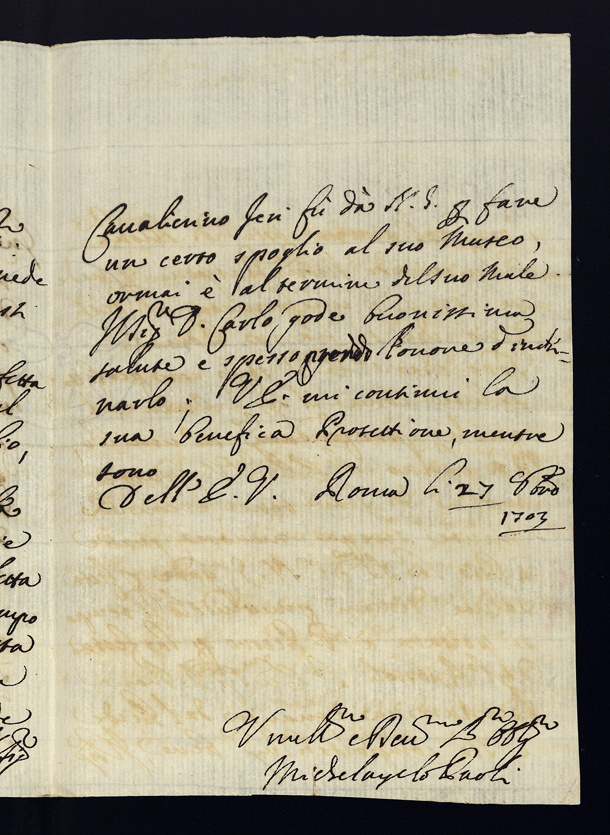 Cavalierino Jeri fù dà N. S. p fare
un certo spoglio al suo Museo,
ormai è al termine del suo Male
Il Sig.r D. Carlo gode buonissima
salute e spesso prendo l'onore d'inchi-
narlo; V. E. mi continui la
sua benefica Protettione, mentre
sono
Dell' E. V. Roma li 27
1703
Um.mo e Dev.mo
Michelangelo Paoli
uede
fetta
io,
etta
mpo